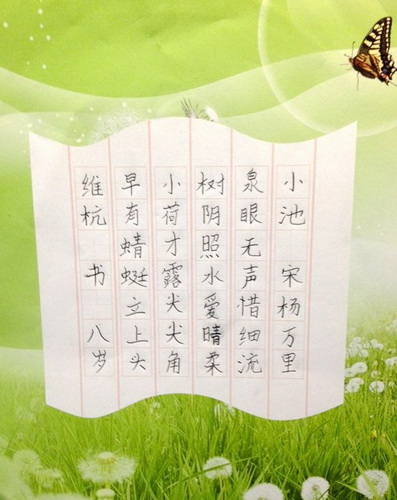 小池 宋杨万里
泉眼无声惜细流
树阴照水爱晴柔
小荷才露尖尖角
早有蜻蜓立上头
维杭 书 八岁